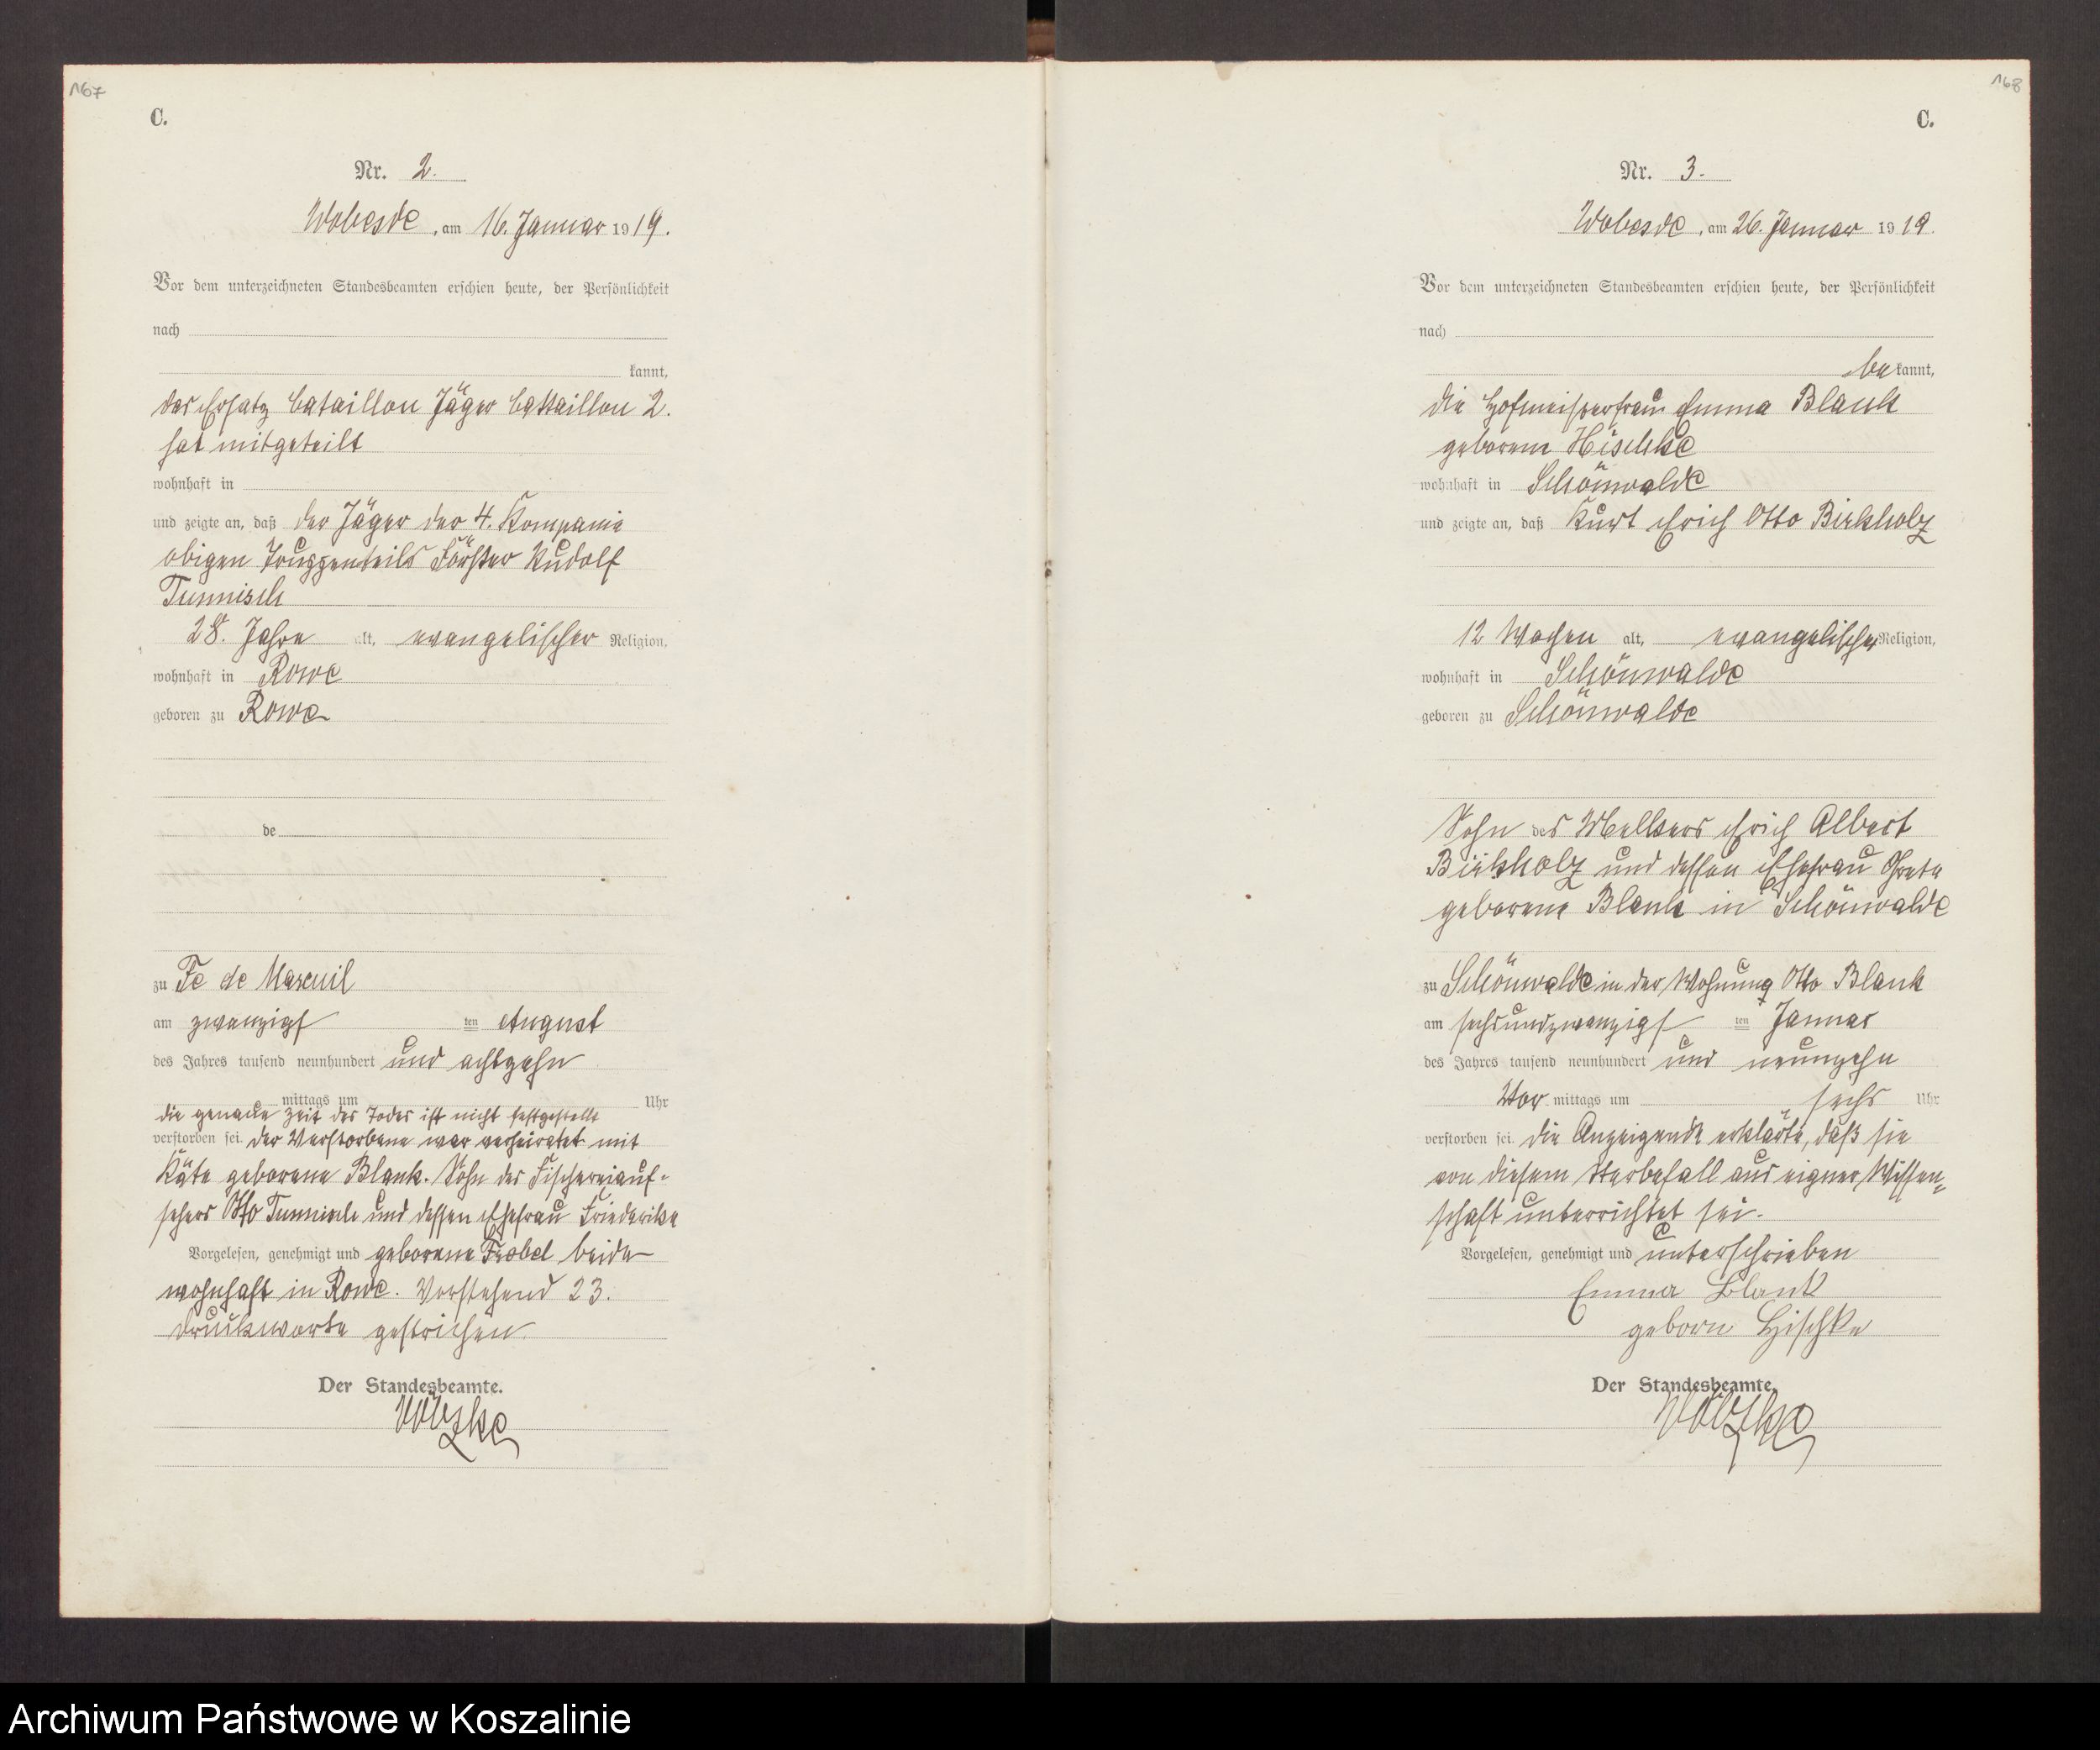 167
C.
Nr. 2.
Wobesde, am 16. Januar 1919.
Vor dem unterzeichneten Standesbeamten erschien heute, der Persönlichkeit
nach
kannt,
das Ersatz bataillon Jäger bataillon 2.
hat mitgeteilt
wohnhaft in
und zeigte an, daß der Jäger der 4. Kompanie
obigen Truppenteils Förster Rudolf
Tummisch
28. Jahre alt, evangelischer Religion,
wohnhaft in Rowe
geboren zu Rowe
de
zu Fe de Mareuil
am zwanzigsten August
des Jahres tausend neunhundert und achtzehn
mittags um Uhr
die genaue Zeit des Todes ist nicht festgestellt
verstorben sei. Der Verstorbene war verheiratet mit
Käte geborene Blank. Sohn des Fischereiauf-
sehers Otto Tummisch und dessen Ehefrau Friederike
Vorgelesen, genehmigt und geborene beide
wohnhaft in Rowe. Vorstehend 23.
Druckworte gestrichen.
Der Standesbeamte.
168
C.
Nr. 3.
Wobesde, am 26. Januar 1919.
Vor dem unterzeichneten Standesbeamten erschien heute, der Persönlichkeit
nach
bekannt,
die Hofmeisterfrau Emma Blank
geborene Hischke
wohnhaft in Schönwalde
und zeigte an, daß Kurt Erich Otto Birkholz
12 Wochen alt, evangelischer Religion,
wohnhaft in Schönwalde
geboren zu Schönwalde
Sohn des Melkers Erich Albert
Birkholz und dessen Ehefrau Grete
geborene Blank in Schönwalde
zu Schönwalde in der Wohnung Otto Blank
am sechsundzwanzigsten Januar
des Jahres tausend neunhundert und neunzehn
Vor mittags um sechs Uhr
verstorben sei. Die Anzeigende erklärte, daß sie
von diesem Sterbefall aus eigner Wissen=
schaft unterrichtet sei.
Vorgelesen, genehmigt und unterschrieben
Emma Blank
geborn Hischke
Der Standesbeamte.
Archiwum Państwowe w Koszalinie